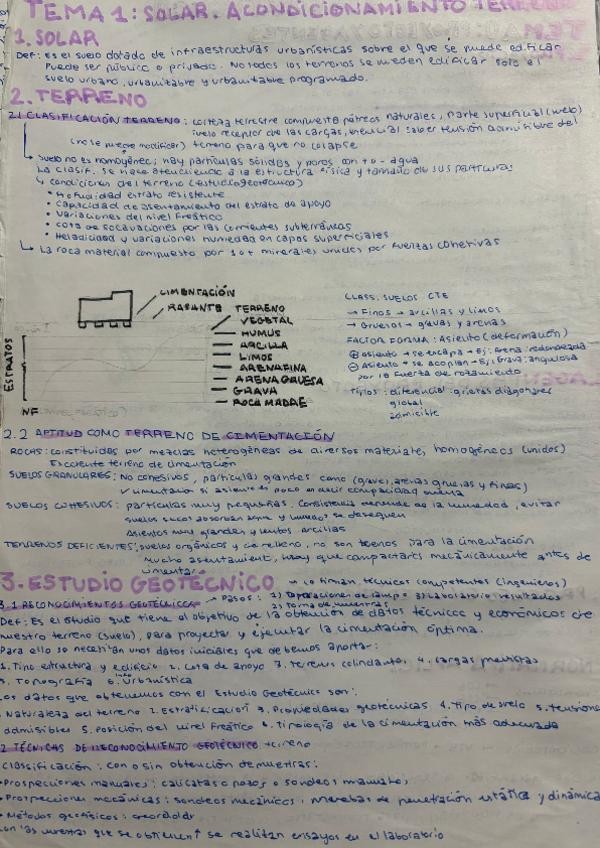 TEMA 1: SOLAR. ACONDICIONAMIENTO TERRENO
1. SOLAR
Def: es el suelo dotado de infraestructuras urbanísticas sobre el que se puede edificar
Puede ser público o privado. No todos los terrenos se pueden edificar solo el
suelo urbano, urbanizable y urbanizable programado.
2. TERRENO
2.1 CLASIFICACIÓN TERRENO: corteza terrestre compuesta pétreos naturales, parte superficial (suelo)
suelo receptor de las cargas, esencial saber tensión admisible del
(no se puede modificar) terreno para que no colapse
Suelo no es homogéneo; hay partículas sólidas y poros con + o - agua
La clasif. se hace atendiendo a la estructura física y tamaño de sus partículas
Condiciones del terreno (estudio geotécnico)
• Profundidad estrato resistente
• Capacidad de asentamiento del estrato de apoyo
• Variaciones del nivel freático
• Cota de socavaciones por las corrientes subterráneas
• Heladicidad y variaciones humedad en capas superficiales
La roca material compuesto por 1 o + minerales unidos por fuerzas cohesivas
CIMENTACIÓN
RASANTE
TERRENO
VEGETAL
HUMUS
ARCILLA
LIMOS
ARENA FINA
ARENA GRUESA
GRAVA
ROCA MADRE
ESTRATOS
NF
CLASS. SUELOS CTE
→ Finos → arcillas y limos
→ Gruesos → gravas y arenas
FACTOR FORMA: Asiento (deformación)
⊕ asiento → se escapa → Ej: Arena redondeada
⊖ Asiento → se acoplan → Ej: Grava angulosa
por la fuerza de rozamiento
Tipos: diferencial: grietas diagonales
global
admisible
2.2 APTITUD COMO TERRENO DE CIMENTACIÓN
ROCAS: constituidas por mezclas heterogéneas de diversos materiales, homogéneos (unidos)
Excelente terreno de cimentación
SUELOS GRANULARES: No cohesivos, partículas grandes como (grava, arenas gruesas y finas)
cimentación si asiento es poco es decir compacidad buena
SUELOS COHESIVOS: partículas muy pequeñas. Consistencia depende de la humedad, evitar
suelos secos absorban agua y húmedos se desequen
Asientos muy grandes y lentos arcillas
TERRENOS DEFICIENTES: suelos orgánicos y de relleno, no son buenos para la cimentación
Mucho asentamiento, hay que compactarlos mecánicamente antes de
cimentar
3. ESTUDIO GEOTÉCNICO → Lo firman técnicos competentes (ingenieros)
3.1 RECONOCIMIENTOS GEOTÉCNICOS → Pasos: 1) Operaciones de campo 3) Laboratorio resultados
2) toma de muestras
Def: Es el estudio que tiene el objetivo de la obtención de datos técnicos y económicos de
nuestro terreno (suelo), para proyectar y ejecutar la cimentación óptima.
Para ello se necesitan unos datos iniciales que debemos aportar:
1. Tipo estructura y edificio 2. Cota de apoyo 3. terrenos colindantes 4. cargas previstas
5. Topografía 6. Urbanística
Los datos que obtenemos con el Estudio Geotécnico son:
Naturaleza del terreno 2. Estratificación 3. Propiedades geotécnicas 4. Tipo de suelo 5. tensiones
admisibles 5. Posición del nivel freático 6. Tipología de la cimentación más adecuada
2 TÉCNICAS DE RECONOCIMIENTO GEOTÉCNICO terreno
Clasificación: con o sin obtención de muestras:
• Prospecciones manuales: calicatas o pozos o sondeos manuales
• Prospecciones mecánicas: sondeos mecánicos, pruebas de penetración estática y dinámica
• Métodos geofísicos:
con las muestras que se obtienen se realizan ensayos en el laboratorio